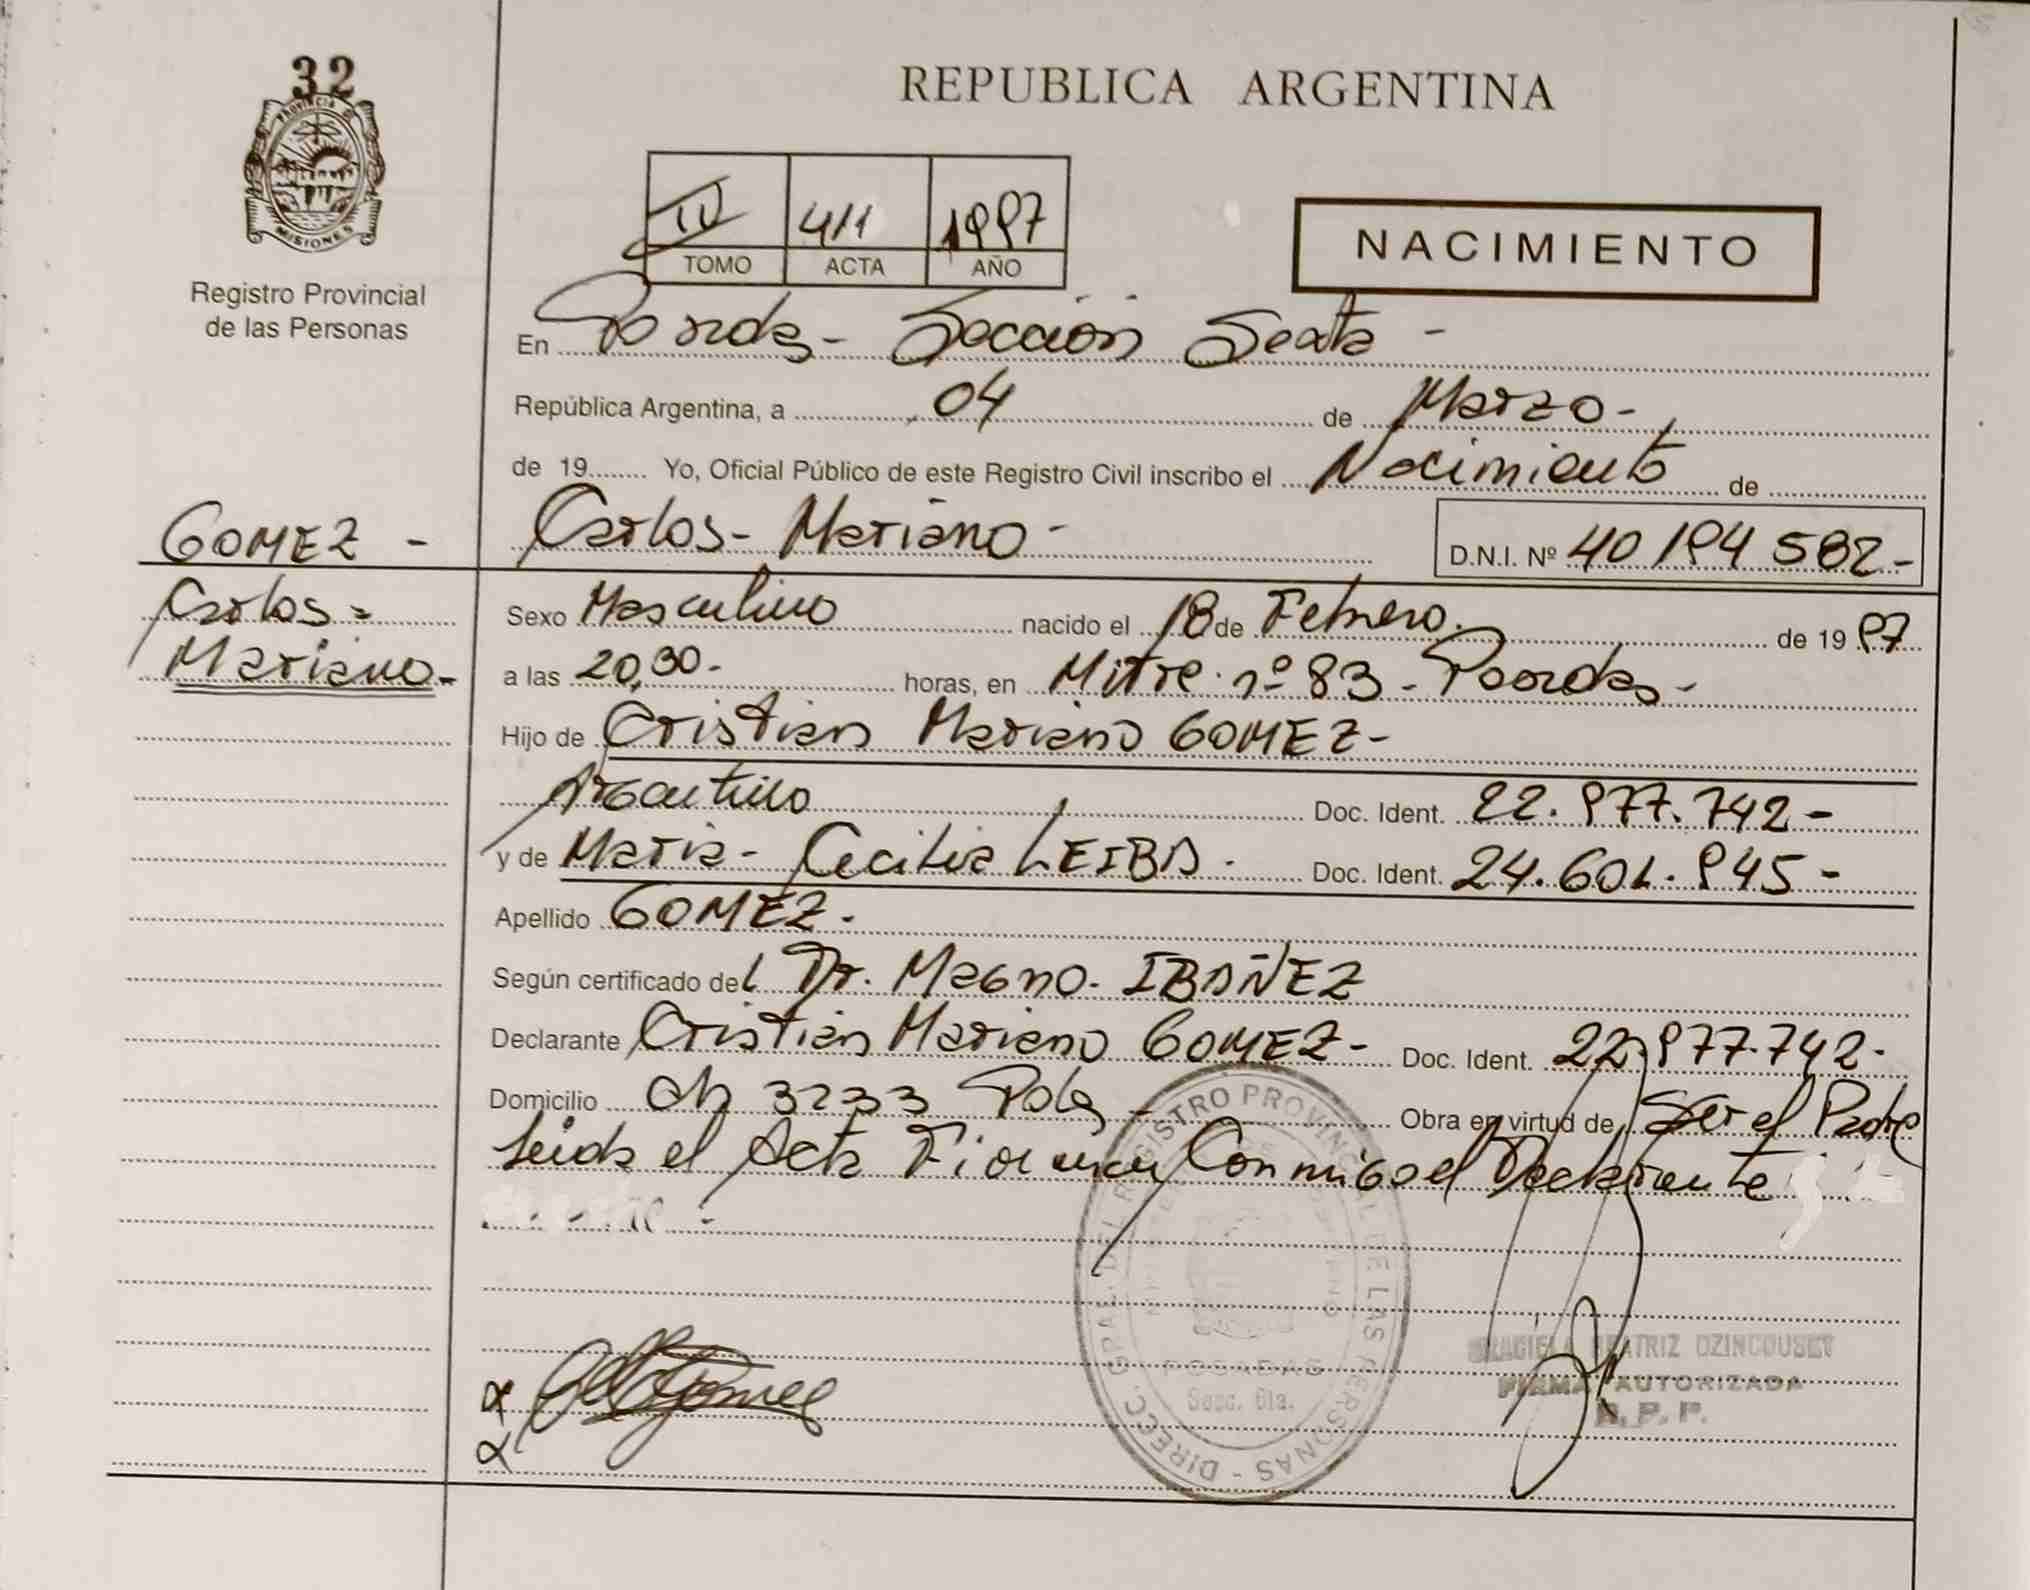 32
PROVINCIA DE
MISIONES
Registro Provincial
de las Personas
REPUBLICA ARGENTINA
IV 411 1997
TOMO ACTA AÑO
NACIMIENTO
En Posadas - Sección Sexta -
República Argentina, a 04 de Marzo -
de 19 Yo, Oficial Público de este Registro Civil inscribo el Nacimiento de
GOMEZ - Carlos - Mariano - D.N.I. Nº 40 194 582 -
Carlos - Sexo Masculino nacido el 18 de Febrero. de 19 97
Mariano - a las 20,30 - horas, en Mitre nº 83 - Posadas -
Hijo de Cristian Mariano GOMEZ -
Argentino Doc. Ident. 22.977.742 -
y de Maria - Cecilia LEIBA - Doc. Ident. 24.601.945 -
Apellido GOMEZ -
Según certificado del Dr. Magno - IBAÑEZ
Declarante Cristian Mariano GOMEZ - Doc. Ident. 22.977.742 -
Domicilio Ch 3233 Pdas - Obra en virtud de Ser el Padre
Leida el Acta Firman Conmigo el Declarante
DIRECC. GRAL. DEL REGISTRO PROVINCIAL DE LAS PERSONAS -
POSADAS
Secc. 6ta.
GRACIELA BEATRIZ DZINCOUSKY
FIRMA AUTORIZADA
R. P. P.